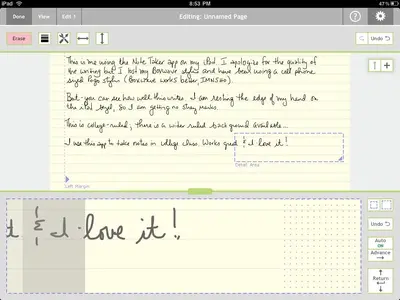 iPad
8:53 PM
47%
Done
View
Edit
Editing: Unnamed Page
Erase
Undo
This is me using the Note Taker app on my iPad. I apologize for the quality of
the writing but I lost my Boxwave stylus and have been using a cell phone
sized Pogo stylus (Boxwave works better, IMNSHO).
But you can see how well this writes. I am resting the edge of my hand on
the iPad, so I am getting no stray marks.
This is college-ruled; there is a wider ruled background available...
I use this app to take notes in college class. Works good & I love it!
Detail Area
Left Margin
t & I love it!
Undo
Auto
ON
Advance
Return